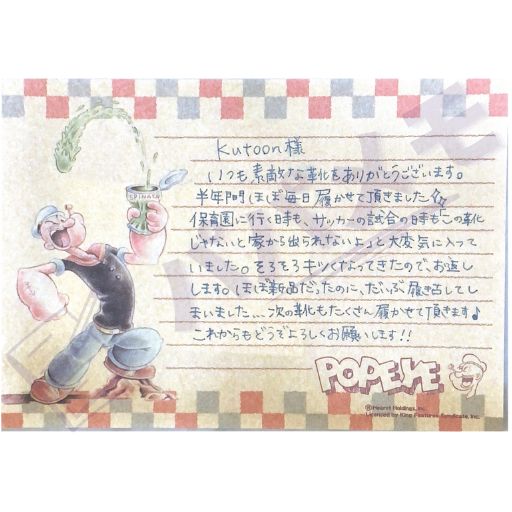 Kutoon様
いつも素敵な靴をありがとうございます。
半年間ほぼ毎日履かせて頂きました!!
保育園に行く時も、サッカーの試合の時もこの靴
じゃないと家から出られないよっと大変気に入って
いました。そろそろキツくなってきたので、お返し
します。ほぼ新品だったのに、だいぶ履き古してし
まいました...次の靴もたくさん履かせて頂きます♪
これからもどうぞよろしくお願いします!!
SPINACH
POPEYE
©Hearst Holdings, Inc.
Licensed by King Features Syndicate, Inc.